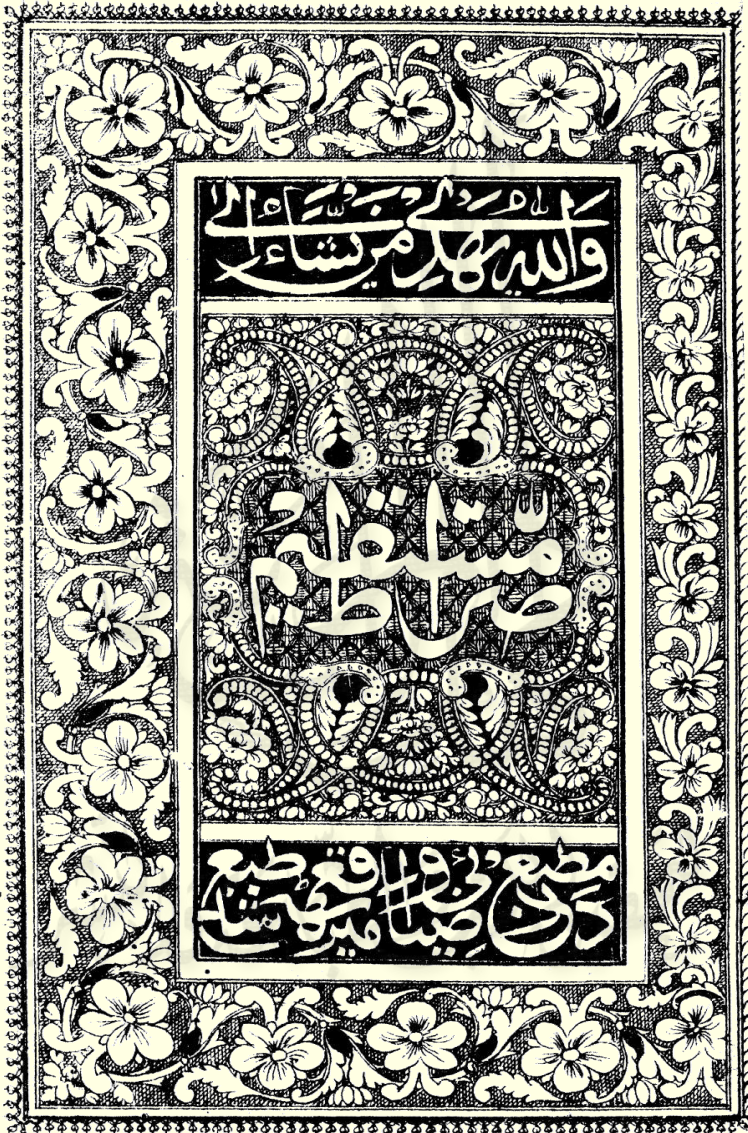 وَاللهُ يَهْدِي مَنْ يَشَاءُ إِلَى
صِرَاطٍ مُسْتَقِيمٍ
در مطبع ضيائي واقع ميرٹھ طبع شد